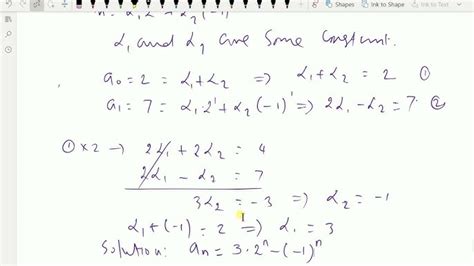 Ink to Shape Ink to
aₙ = α₁2ⁿ + α₂(-1)ⁿ
α₁ and α₂ are some constant.
a₀ = 2 = α₁ + α₂ ⇒ α₁ + α₂ = 2 ①
a₁ = 7 = α₁·2¹ + α₂(-1)¹ ⇒ 2α₁ - α₂ = 7 ②
① × 2 → 2α₁ + 2α₂ = 4
2α₁ - α₂ = 7
3α₂ = -3 ⇒ α₂ = -1
α₁ + (-1) = 2 ⇒ α₁ = 3
Solution: aₙ = 3·2ⁿ - (-1)ⁿ